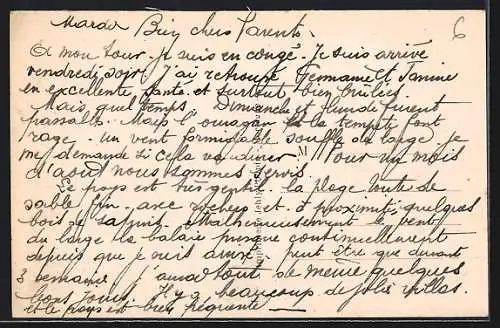 Mardi Bien chers Parents.
A mon tour je suis en congé. Je suis arrivé
vendredi soir j'ai retrouvé Germaine et Janine
en excellente santé et surtout bien brûlées.
Mais quel temps Dimanche et lundi furent
passable. Mais l'ouragan et la tempête font
rage. un vent formidable souffle du large je
me demande si cela va durer. Pour un mois
d'août nous sommes servis
Le pays est très gentil. la plage toute de
sable fin. avec rochers et à proximité quelques
bois de sapins. Malheureusement le vent
du large la balaie presque continuellement
depuis que je suis arrivé. peut être que durant
3 semaines j'aurai tout de même quelques
bons jours. Il y a beaucoup de jolis villas.
et le pays est bien fréquenté
6